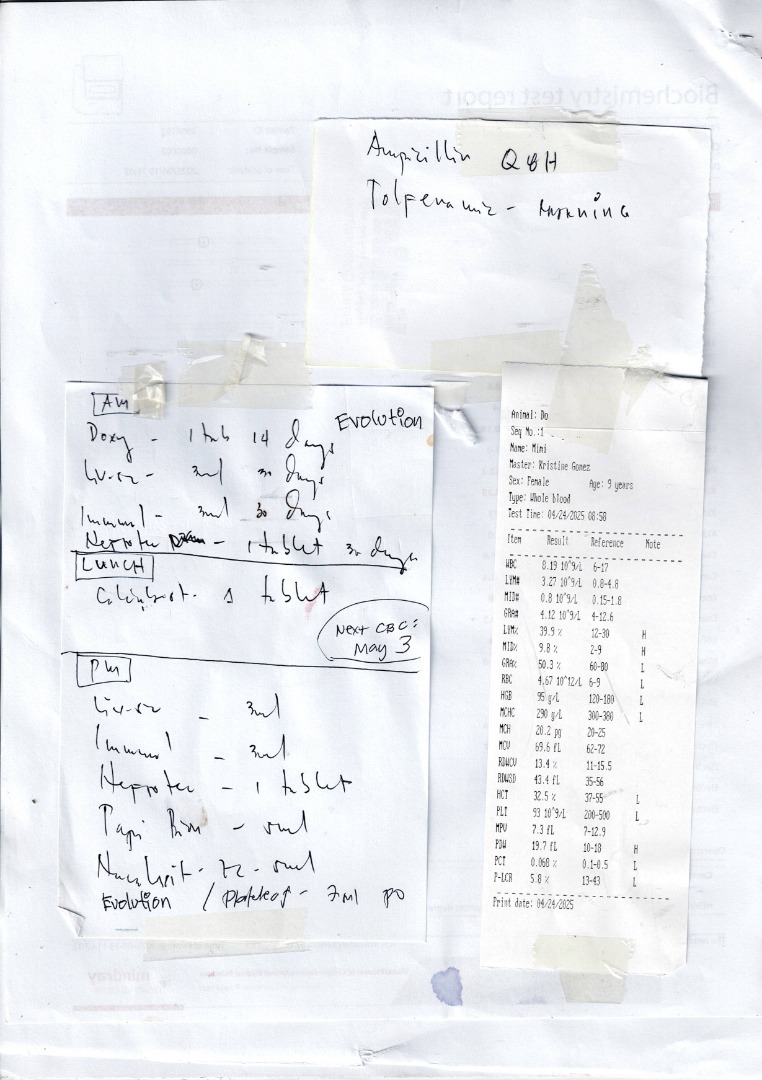 Biochemistry test report
Ampicillin Q8H
Tolfenamic - morning
AM
Evolution
Doxy - 1 tab 14 days
Liv-52 - 3ml 30 days
Immunol - 3ml 30 days
Heprotec - 1 tablet 30 days
LUNCH
1 tablet
Next CBC:
May 3
PM
Liv-52 - 3ml
Immunol - 3ml
Heprotec - 1 tablet
Papi - 5ml
Evolution / - 7ml PO
Animal: Do
Seq No.:1
Name: Mimi
Master: Kristine Gomez
Sex: Female Age: 9 years
Type: Whole blood
Test Time: 04/24/2025 08:58
Item Result Reference Note
WBC 8.19 10^9/L 6-17
LYM# 3.27 10^9/L 0.8-4.8
MID# 0.8 10^9/L 0.15-1.8
GRA# 4.12 10^9/L 4-12.6
LYM% 39.9 % 12-30 H
MID% 9.8 % 2-9 H
GRA% 50.3 % 60-80 L
RBC 4.67 10^12/L 6-9 L
HGB 95 g/L 120-180 L
MCHC 290 g/L 300-380 L
MCH 20.2 pg 20-25
MCV 69.6 fL 62-72
RDWCV 13.4 % 11-15.5
RDWSD 43.4 fL 35-56
HCT 32.5 % 37-55 L
PLT 93 10^9/L 200-500 L
MPV 7.3 fL 7-12.9
PDW 19.7 fL 10-18 H
PCT 0.068 % 0.1-0.5 L
P-LCR 5.8 % 13-43 L
Print date: 04/24/2025
mindray